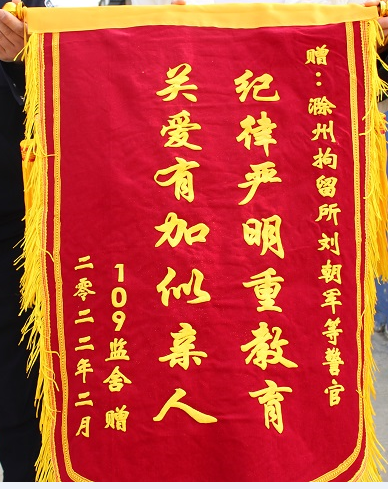 赠：滁州拘留所刘朝军等警官
纪律严明重教育
关爱有加似亲人
109监舍 赠
二零二二年二月